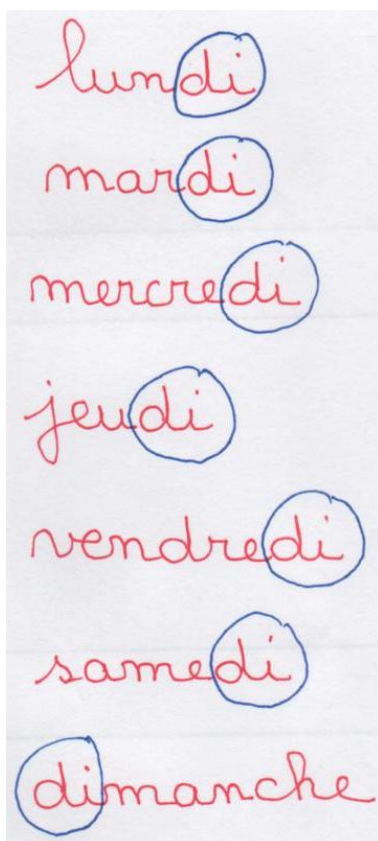 lundi
mardi
mercredi
jeudi
vendredi
samedi
dimanche